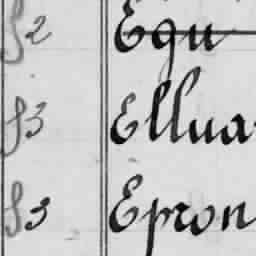 f2 Equ
f3 Ellua
f3 Epron